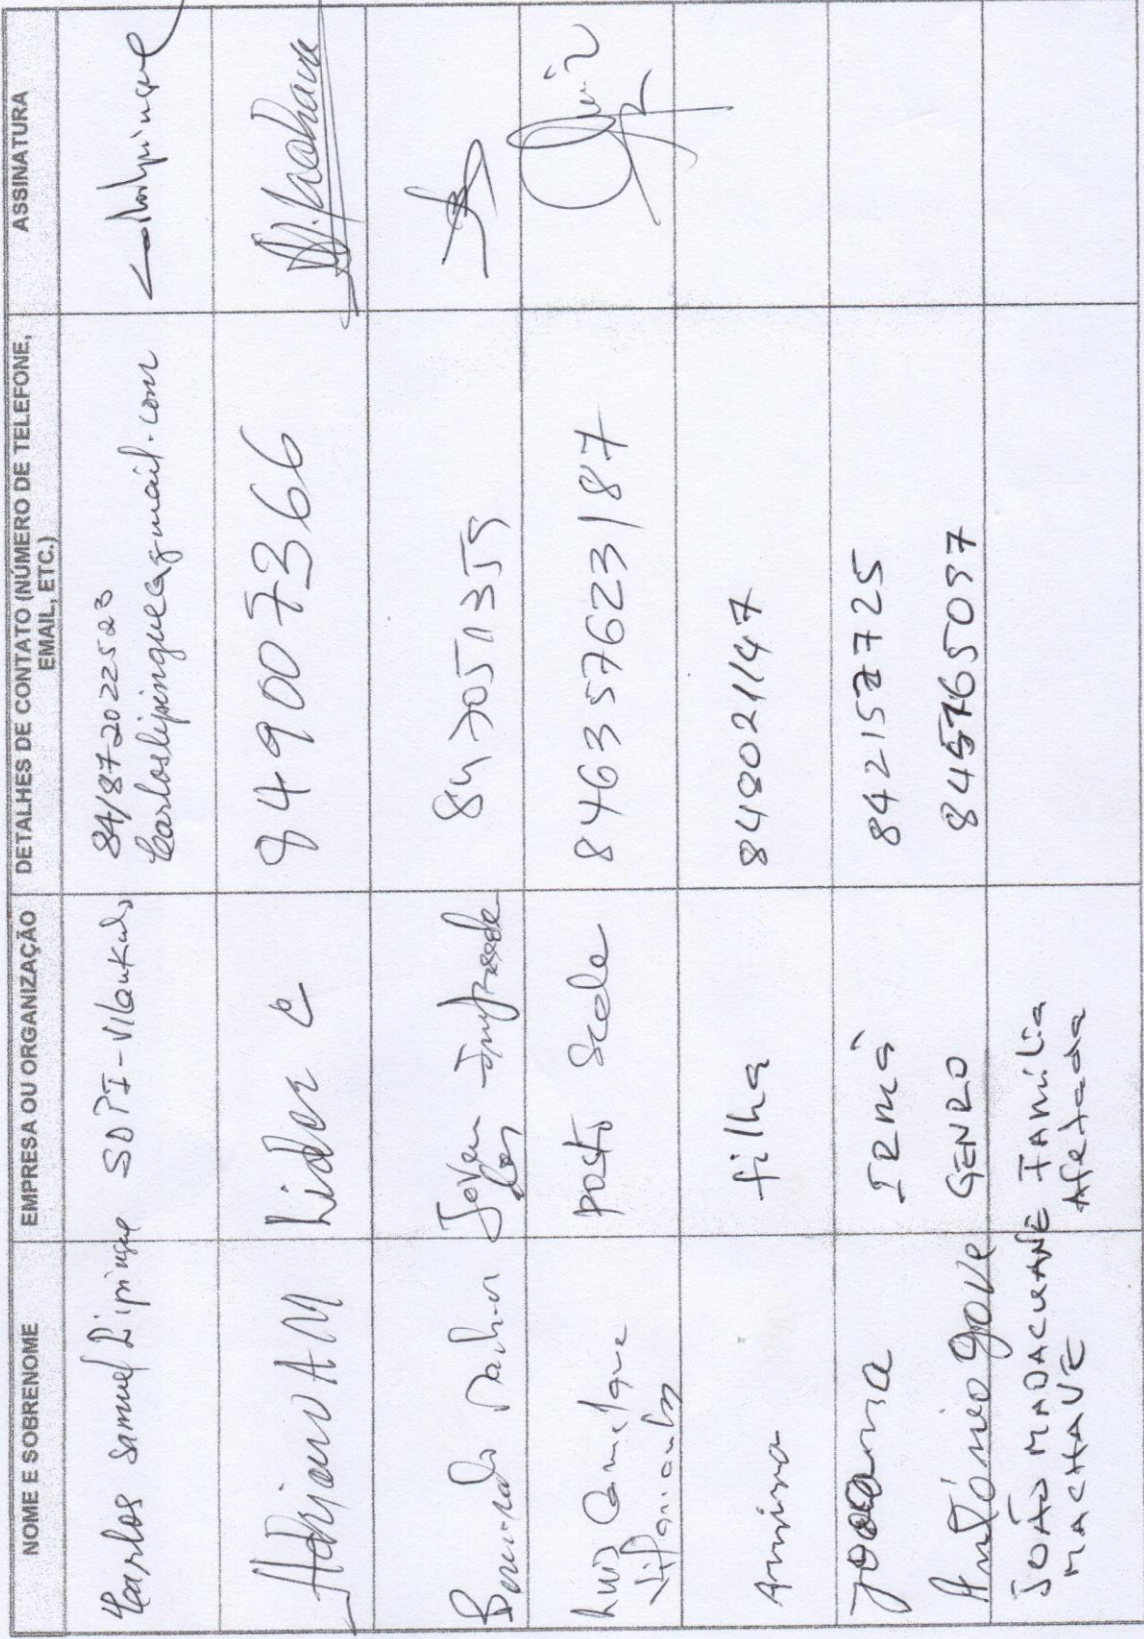 NOME E SOBRENOME
EMPRESA OU ORGANIZAÇÃO
DETALHES DE CONTATO (NÚMERO DE TELEFONE,
EMAIL, ETC.)
ASSINATURA
Carlos Samuel Lipingue
SDPI-Vilankulo
84/872022523
Carloslipingue@gmail.com
Adriano A M
Lider C
849007366
Bernardo
Jovem
847051355
Luis
Posto
846357623/87
Amina
filha
848021147
Joana
IRMÃ
842157725
António Gove
GENRO
845765097
JOÃO MADACUANE
MACHAVE
FAMÍLIA
Afetada